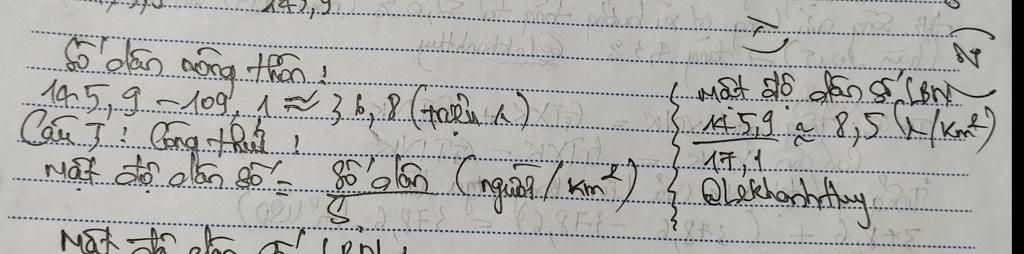 145,9
Số dân nông thôn :
145,9 - 109,1 ≈ 36,8 (triệu n)
Câu 3 : Công thức :
Mật độ dân số = Số dân / S (người/km²)
Mật độ dân số LBN
145,9 / 17,1 ≈ 8,5 (n/km²)
@Lekhanhthuy
Mật độ dân số